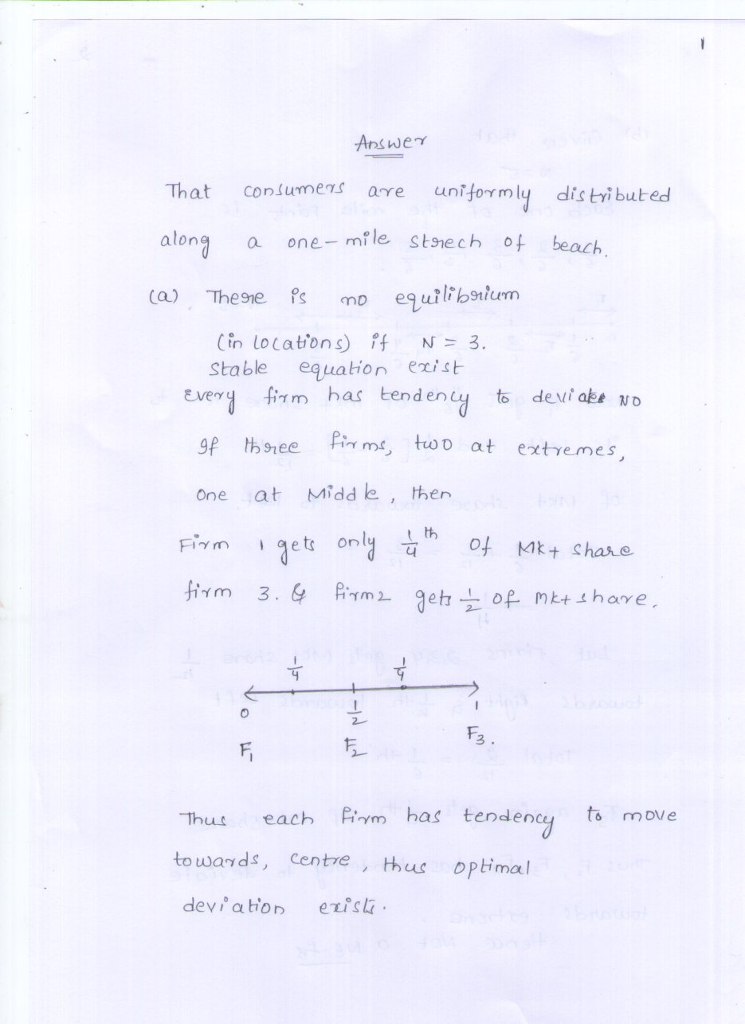 1
Answer
That consumers are uniformly distributed
along a one-mile strech of beach.
(a) There is no equilibrium
(in locations) if N = 3.
stable equation exist
Every firm has tendency to deviate NO
If three firms, two at extremes,
one at Middle, then
Firm 1 gets only 1/4 th of Mkt share
firm 3. & firm2 gets 1/2 of mkt share.
1/4 1/4
0 1/2 1
F1 F2 F3
Thus each firm has tendency to move
towards, centre, thus optimal
deviation exists.